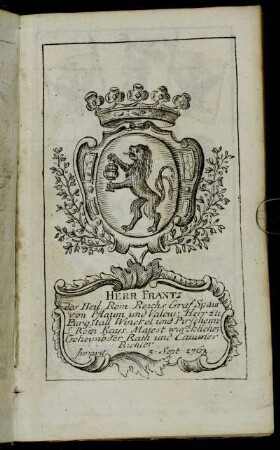 HERR FRANTZ
des Heil. Röm. Reichs Graf Spaur
von Pflaum und Valeur, Herr zu
Burgstall Winckel und
Röm. Kays. Majest würcklicher
Geheimbder Rath und Cammer
Richter
juravit 2. Sept. 1763